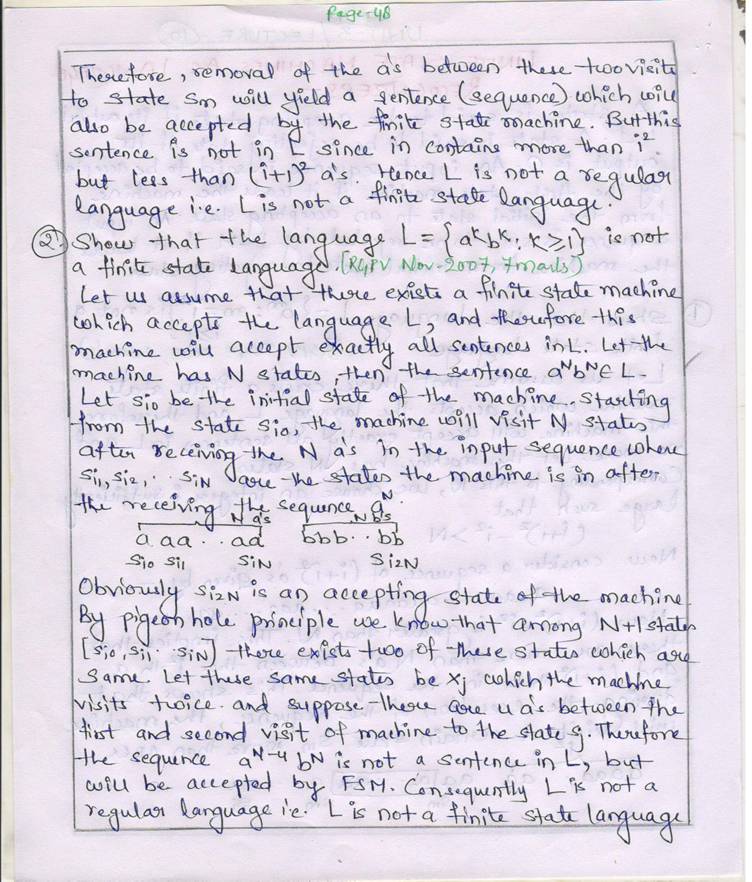 Page-48
Therefore, removal of the a's between these two visits
to state Sm will yield a sentence (sequence) which will
also be accepted by the finite state machine. But this
sentence is not in L since in contains more than i²
but less than (i+1)² a's. Hence L is not a regular
language i.e. L is not a finite state language.
2. Show that the language L = {a^k b^k : k ≥ 1} is not
a finite state language. (RGPV Nov-2007, 7 marks)
Let us assume that there exists a finite state machine
which accepts the language L, and therefore this
machine will accept exactly all sentences in L. Let the
machine has N states, then the sentence a^N b^N ∈ L.
Let Si0 be the initial state of the machine. Starting
from the state Si0, the machine will visit N states
after receiving the N a's in the input sequence where
Si1, Si2, . . SiN are the states the machine is in after
the receiving the sequence a^N.
N a's N b's
a aa . . aa bbb . . bb
Si0 Si1 SiN Si2N
Obviously Si2N is an accepting state of the machine
By pigeon hole principle we know that among N+1 states
[Si0, Si1 . . SiN] there exists two of these states which are
same. Let these same states be xj which the machine
visits twice and suppose there are u a's between the
first and second visit of machine to the state Sj. Therefore
the sequence a^N-u b^N is not a sentence in L, but
will be accepted by FSM. Consequently L is not a
regular language i.e. L is not a finite state language